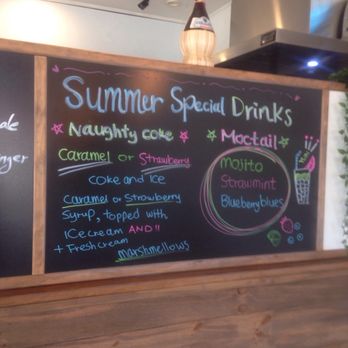 Summer Special Drinks
Naughty coke
Caramel or Strawberry
coke and Ice
caramel or Strowberry
Syrup, topped with
Ice cream AND !!
+ Fresh cream
Marshmellows
Moctail
Mojito
Strawmint
Blueberryblues